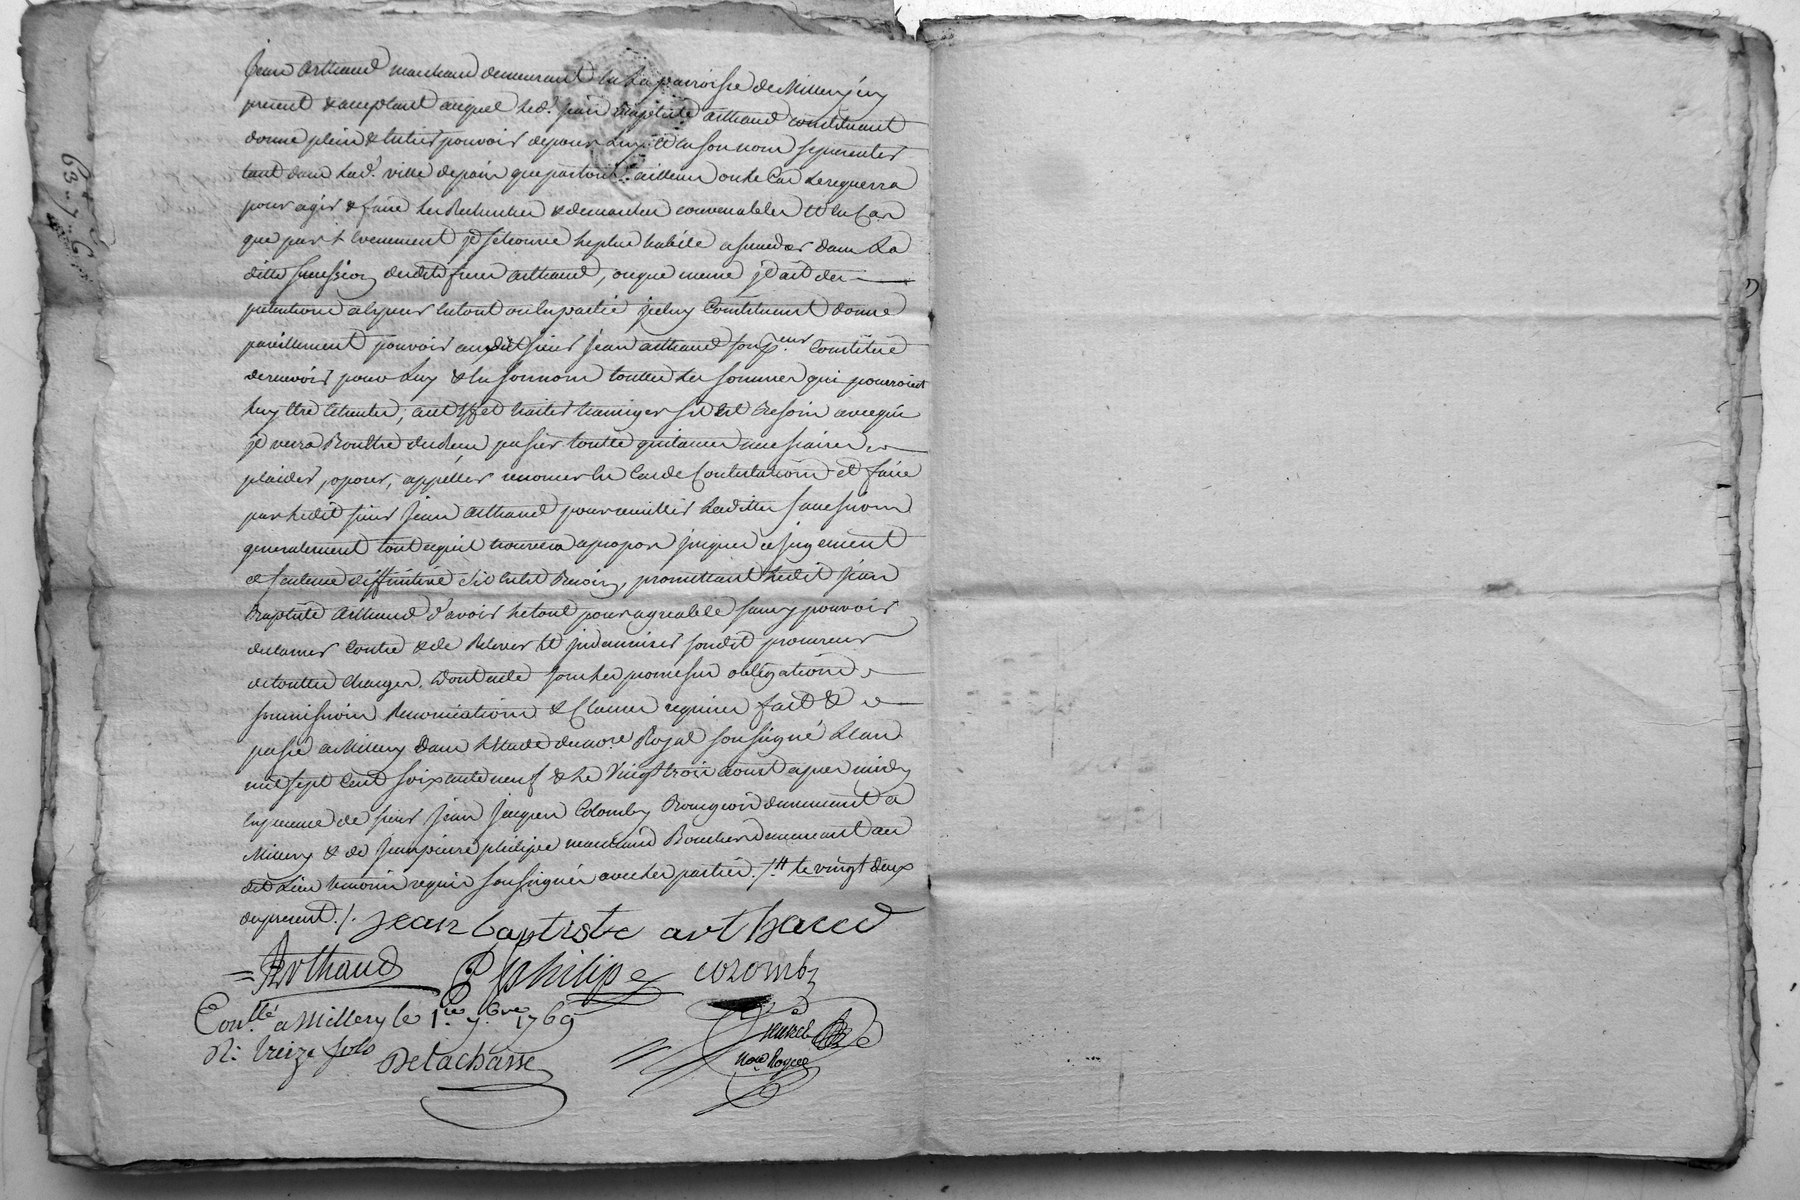 Jean Arthaud marchand demeurant en la parroisse de Millery icy
present & acceptant auquel led. jean Baptiste arthaud constituant
donne plein & entier pouvoir de pour luy et en son nom se presenter
tant dans lad. ville de paris que partout ailleurs ou le Cas le requerra
pour agir & faire les Recherches & demandes convenables et en Cas
que par evenement il se trouve le plus habile a succeder dans La
ditte succession dudit sieur arthaud, ou que meme il ait des
pretentions a le tout ou en partie iceluy Constituant donne
pareillement pouvoir audit sieur jean arthaud son p.eur Constitué
de recevoir pour Luy & en son nom touttes les sommes qui pourroient
luy etre ; aut effet traiter transiger s'il est Besoin avec qui
il verra passer toutte quitances necessaires
plaider, oposer, appeller renoncer en Cas de Contestations et faire
par ledit sieur jean arthaud pour recueillir laditte succession
generalement tout ce qu'il trouvera apropos jusques a jugement
& sentence diffinitive s'il en est Besoin, promettant ledit jean
Baptiste arthaud d'avoir le tout pour agreable sans y pouvoir
contre & de Relever et indamniser sondit procureur
de touttes charges. Dont acte sous les promesses obligations
soumissions Renonciations & Clauses requises fait &
passé a Millery dans L'etude du no.re Royal soussigné L'an
mil sept Cent soixante neuf & le Vingt trois aoust apres midy
en presence de sieur jean jacques Colomby Bourgeois demeurant a
Millery & de jean pierre philipe marchand Boucher demeurant au
dit Lieu temoins requis soussignés avec les parties. le vingt deux
du present ./.
jean baptiste arthaud
= Arthaud philipe colomby
Con.llé a Millery le 1.er 7.bre 1769
R. treize sols Delachasse
no.re Royal